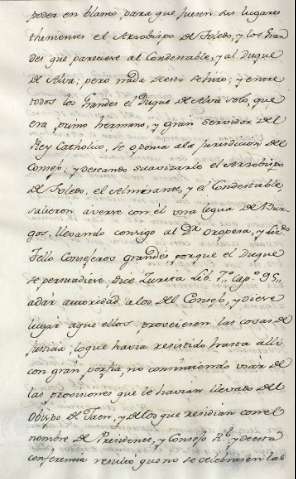 poder en blanco, para que fuesen sus lugares
thenientes el Arzobispo de Toledo, y los Gran
des que pareciese al Condestable, y al Duque
de Alva; pero nada de esto se hizo; y entre
todos los Grandes el Duque de Alva solo, que
era primo hermano, y gran servidor del
Rey Catholico, se oponia ala jurisdicion del
Consejo; y deseando suavizarlo el Arzobispo
de Toledo, el Almirante, y el Condestable
salieron averse con èl una legua de Bur
gos, llevando consigo al Dr. Oropesa, y Licdo.
Tello Consejeros grandes porque el Duque
se persuadiese, dice Zurita Lib. 7º. Cap.º 95,,
adàr autoridad alos del Consejo, y diese
lugar aque ellos proveiesen las cosas de
Justicia, loque havia resistido hasta alli
con gran porfia, no consintiendo usàr de
las provisiones que le havian llevado del
Obispo de Jaen, y delos que residian con el
nombre de Presidente, y Consejo Rl. y de esta
conferencia resultó que no se celebrasen las